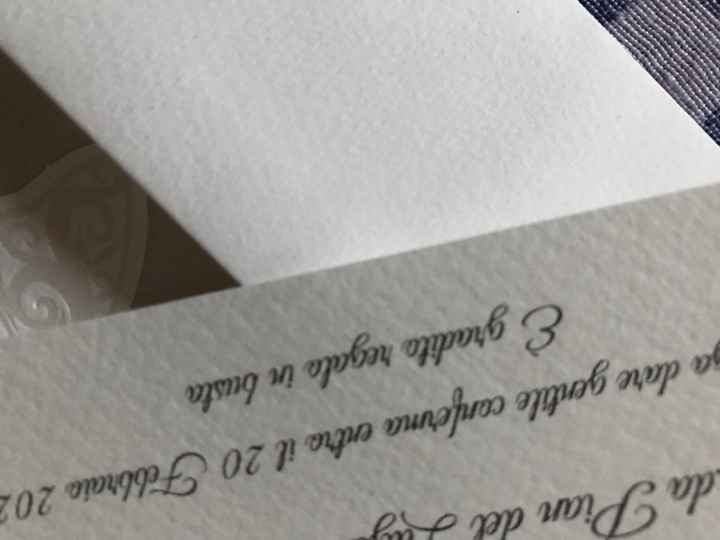 da Pian del
dare gentile conferma entro il 20 Febbraio 202
È gradito regalo in busta